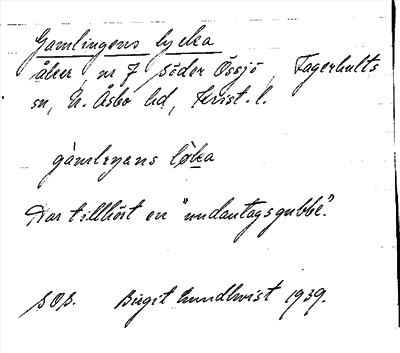 Gamlingens lycka
åker, nr 7 Söder Össjö, Fagerhults
sn, N. Åsbo hd, Krist. l.
gàmlıŋans løka
Har tillhört en "undantagsgubbe".
SOB. Birgit Lundkvist 1939.